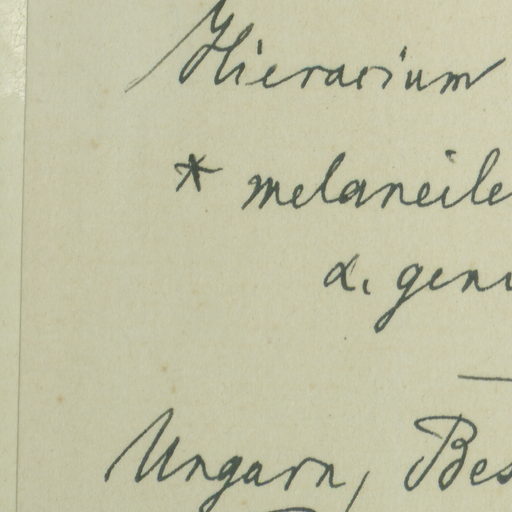 Hieracium
* melaneile
α. geni
Ungarn, Bes